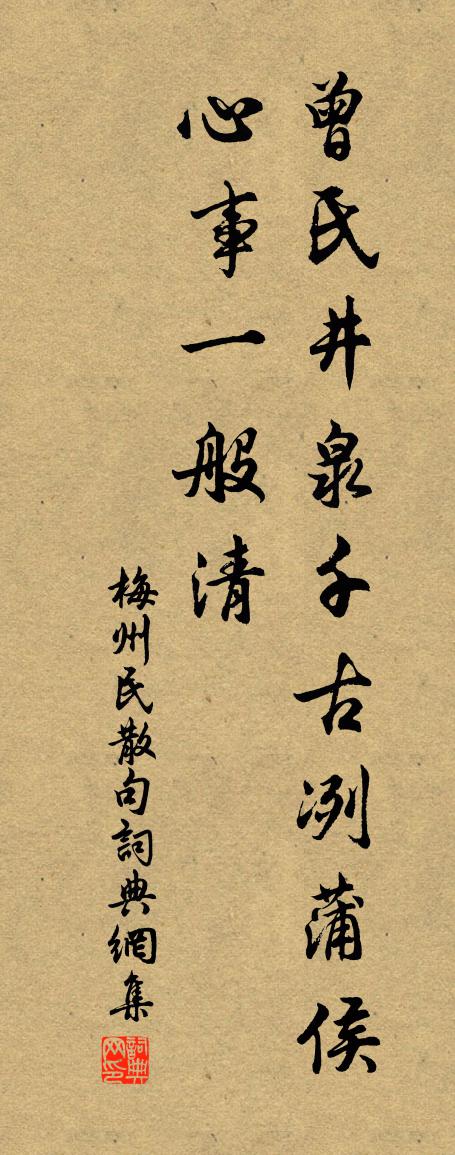 曾氏井泉千古冽蒲侯
心事一般清
梅州民散句詞典網集
詞典网印